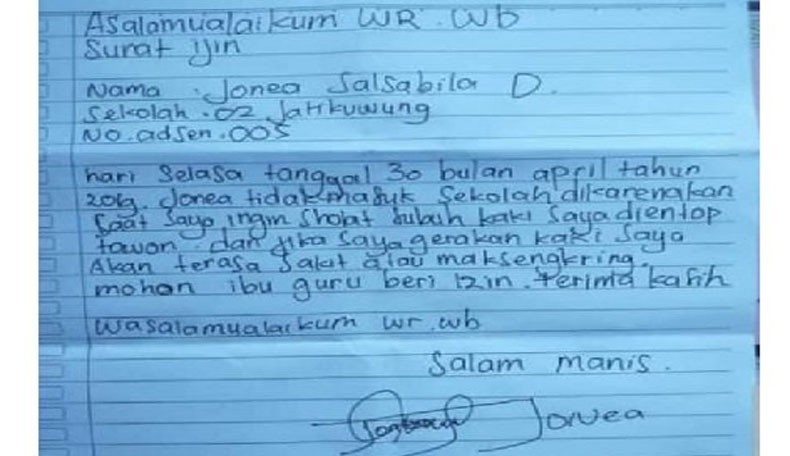 Asalamualaikum WR. Wb
Surat ijin
Nama : Jonea Salsabila D.
Sekolah . 02 Jatikuwung
No. adsen . 005
hari selasa tanggal 30 bulan april tahun
2019. Jonea tidak masuk sekolah dikarenakan
saat saya ingin sholat subuh kaki saya dientop
tawon. dan jika saya gerakan kaki saya
Akan terasa sakit atau maksengkring.
mohon ibu guru beri izin. terima kasih
wasalamualaikum wr. wb
Salam manis.
Jonea